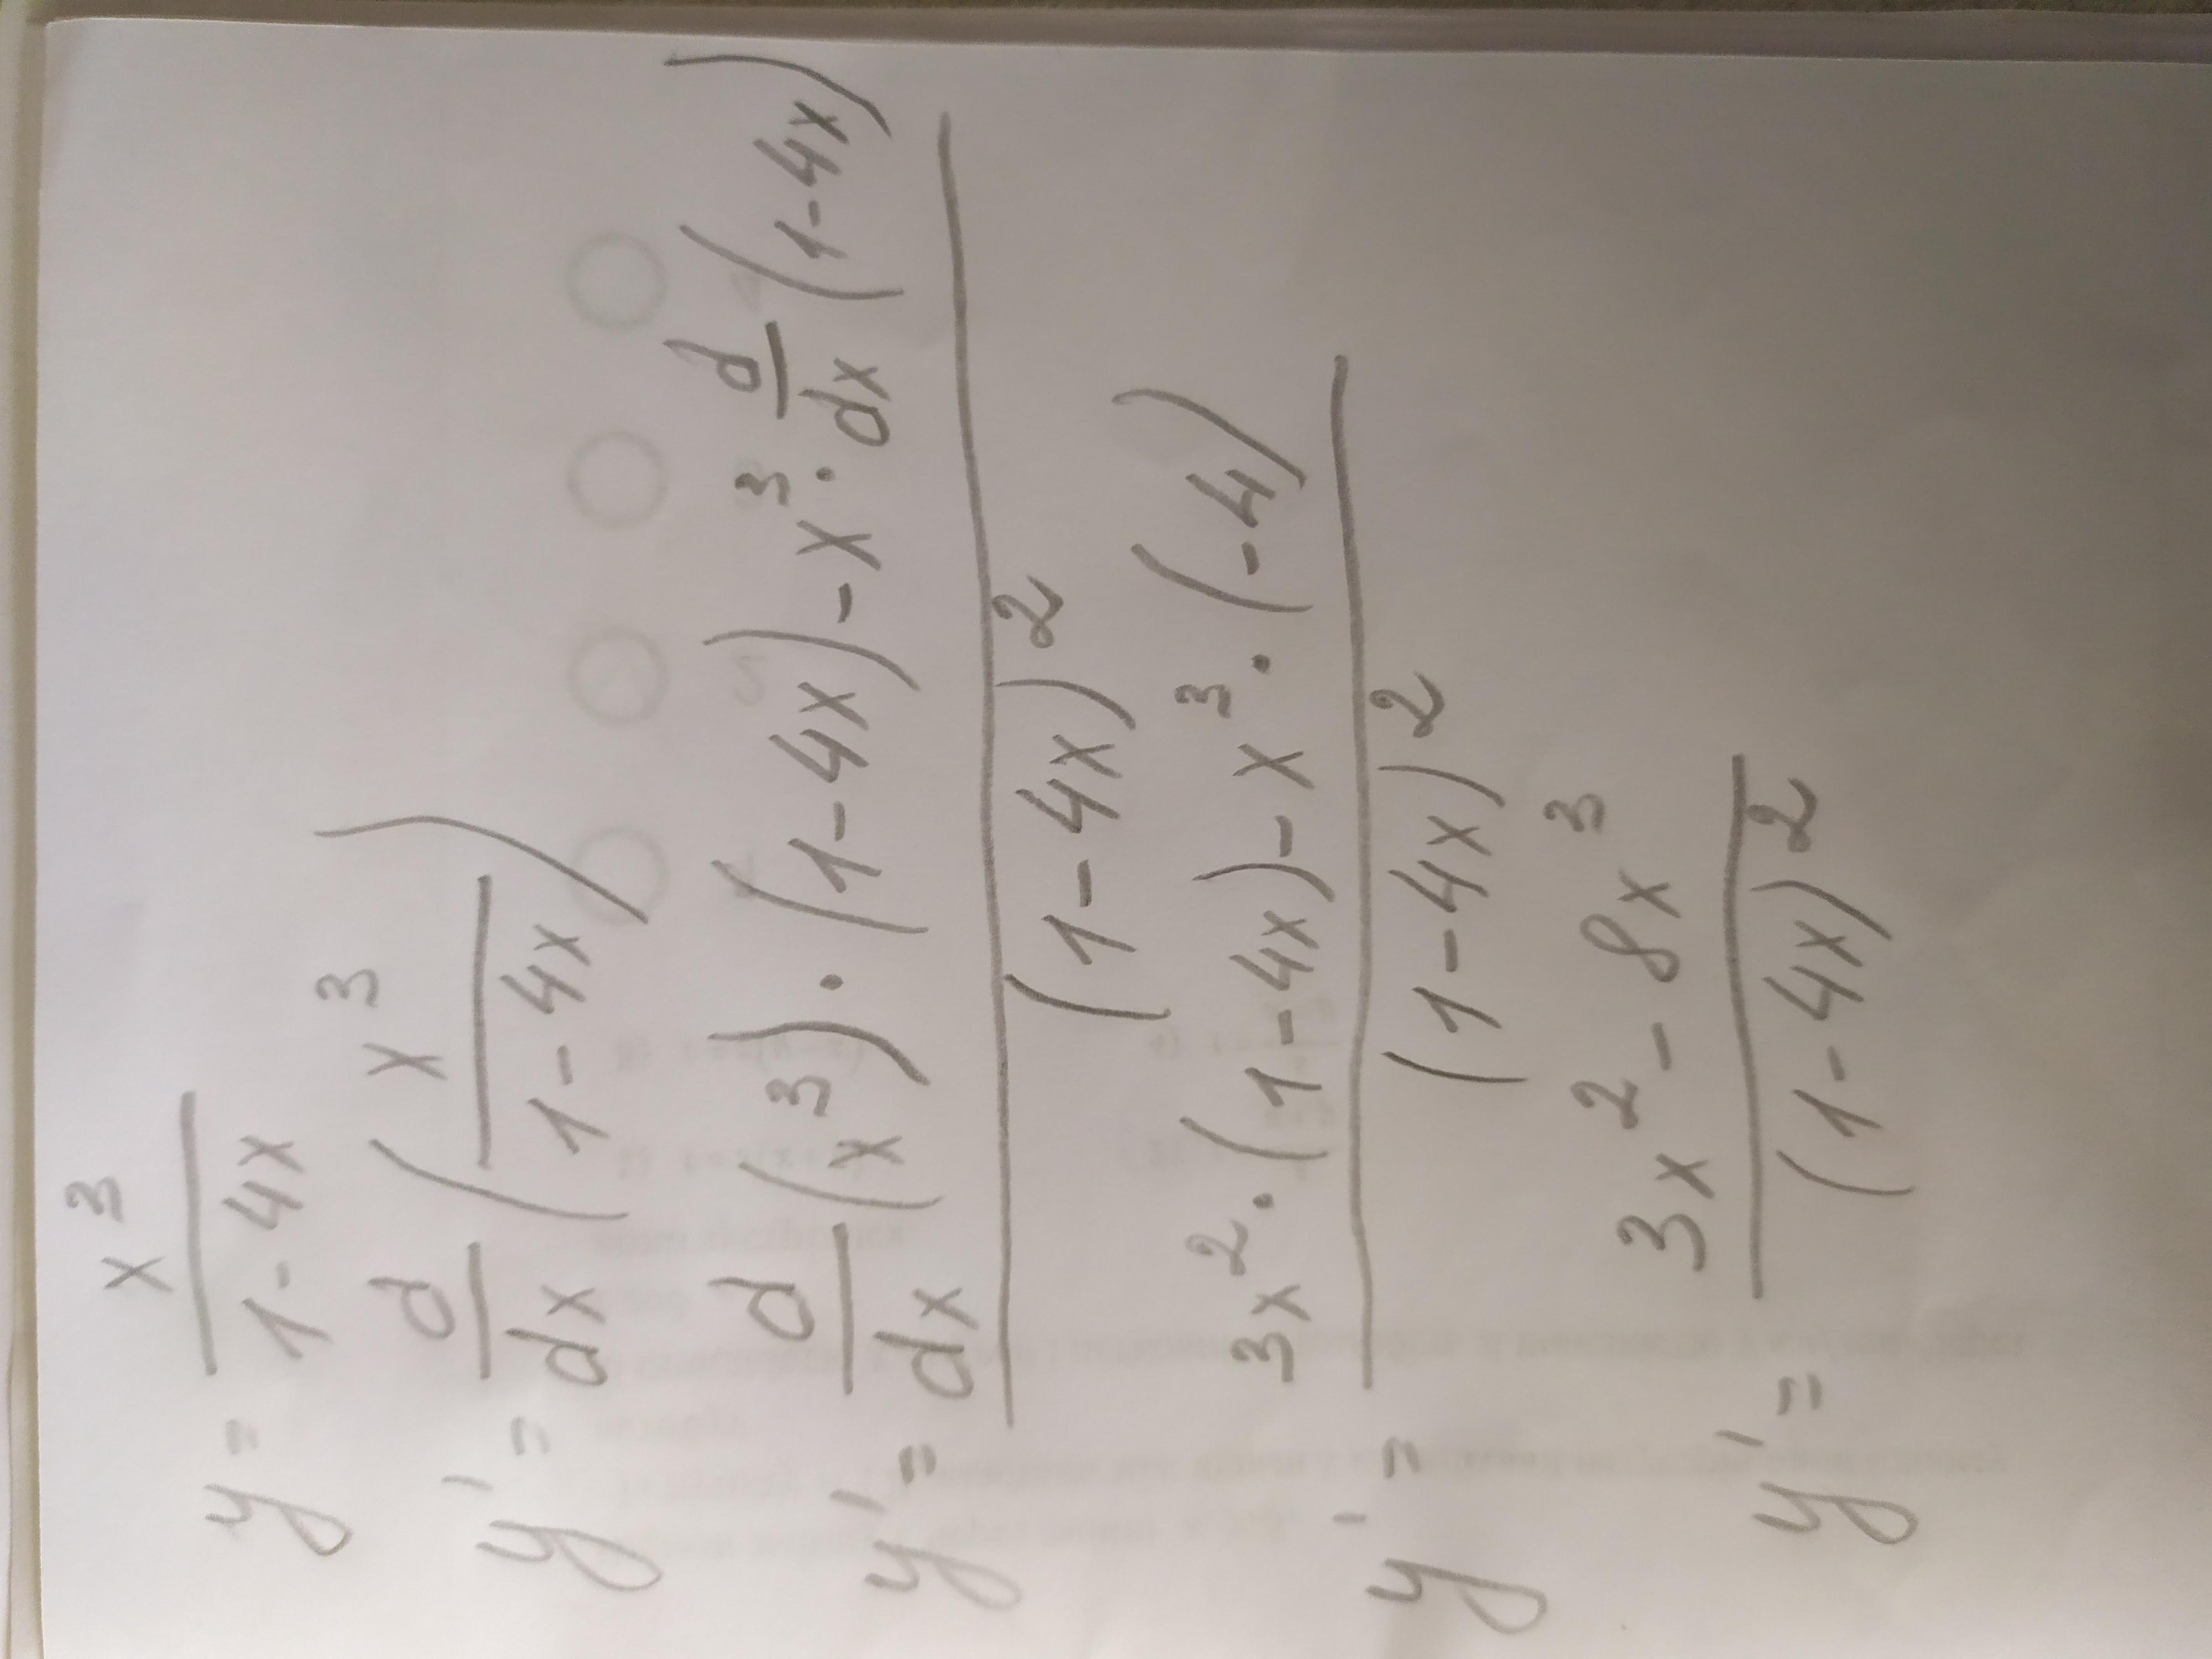 y = x³ / (1-4x)
y' = d/dx (x³ / (1-4x))
y' = (d/dx (x³) · (1-4x) - x³ · d/dx (1-4x)) / (1-4x)²
y' = (3x² · (1-4x) - x³ · (-4)) / (1-4x)²
y' = (3x² - 8x³) / (1-4x)²